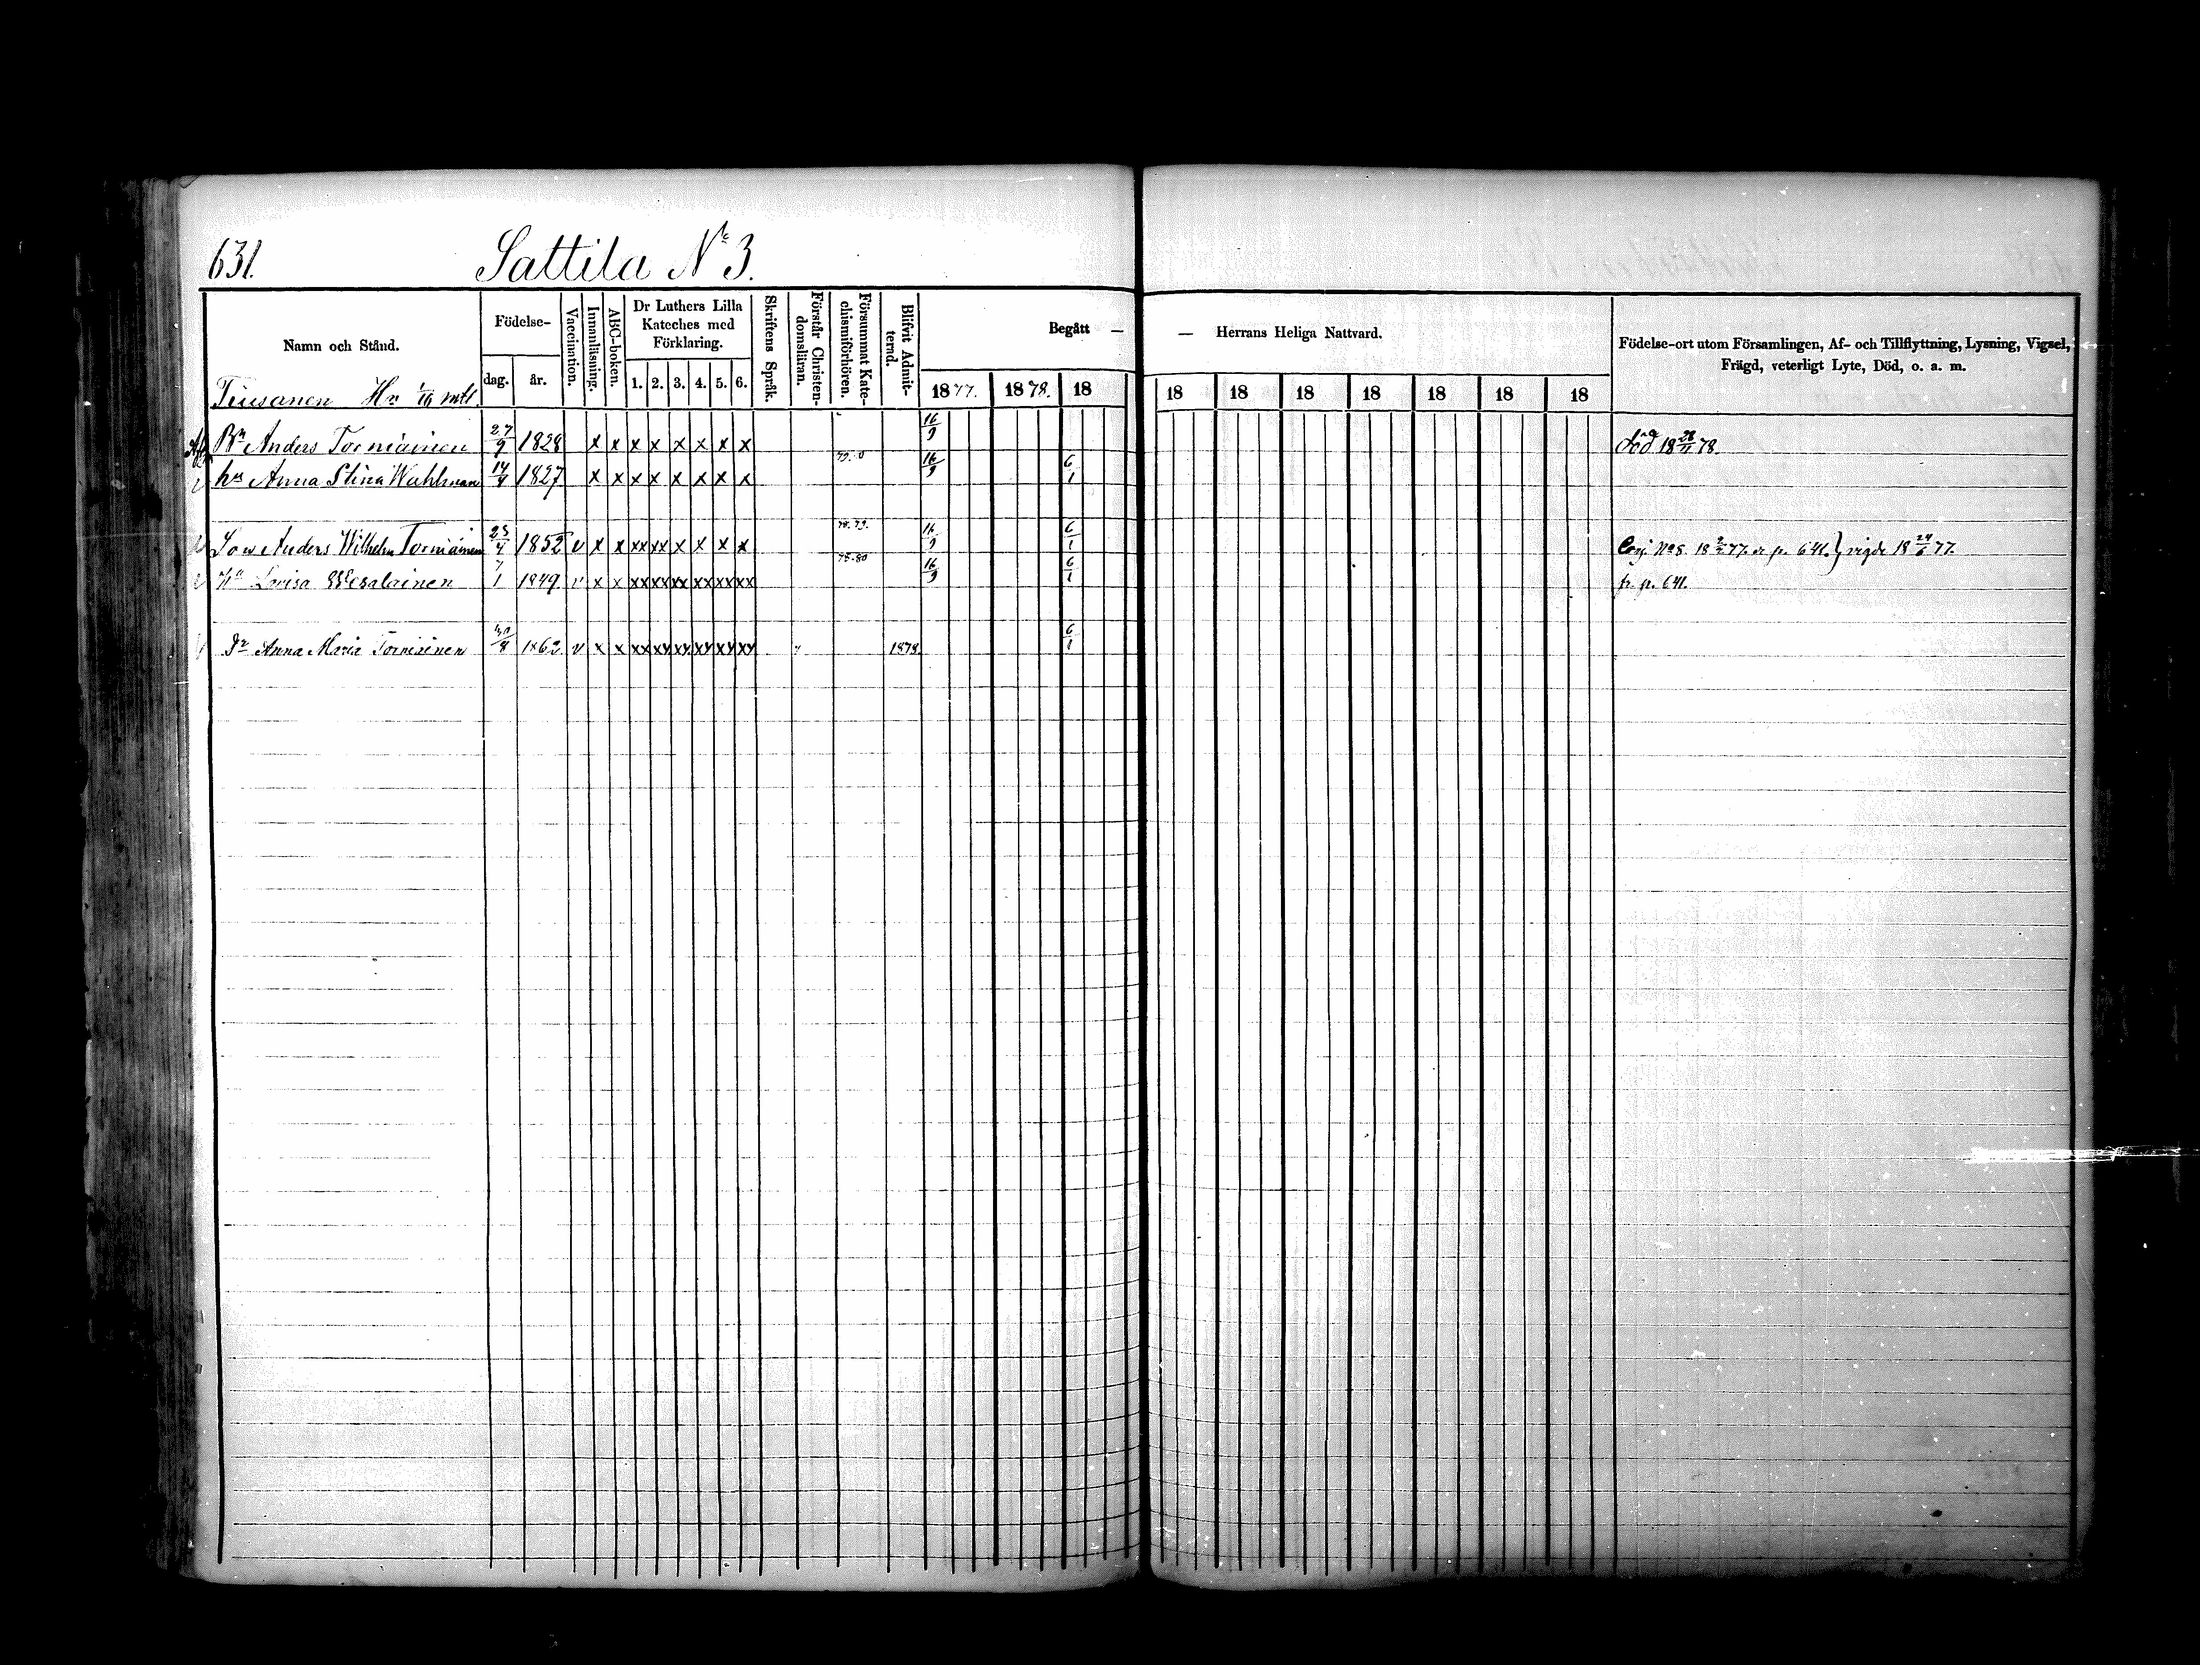 631.
Sattila No 3.
Namn och Stånd.
Födelse-
dag.
år.
Vaccination.
Innanläsning.
ABC-boken.
Dr Luthers Lilla
Kateches med
Förklaring.
1. 2. 3. 4. 5. 6.
Skriftens Språk.
Förstår Christen-
domsläran.
Försummat Kate-
chismiförhören.
Blifvit Admit-
terad.
Begått —
— Herrans Heliga Nattvard.
1877. 1878. 18 18 18 18 18 18 18 18
Födelse-ort utom Församlingen, Af- och Tillflyttning, Lysning, Vigsel,
Frägd, veterligt Lyte, Död, o. a. m.
Tiusanen Hn mtl.
Bn Anders Torniainen 27/9 1828 x x x x x x x x 16/9 död 18 28/11 78.
hu Anna Stina Wahlman 14/4 1827 x x x x x x x x 16/9 6/1
Son Anders Wilhelm Torniainen 23/4 1852 v x x xx xx x x x x 78. 79. 16/9 6/1 18 77. p. 641. } vigde 18 24/6 77.
hu Lovisa Wesalainen 7/1 1849 v x x xx xx xx xx xx xx 16/9 6/1 fr. p. 641.
Dr Anna Maria Torniainen 1862 v x x xx xx xx xx xx xx 1878 6/1